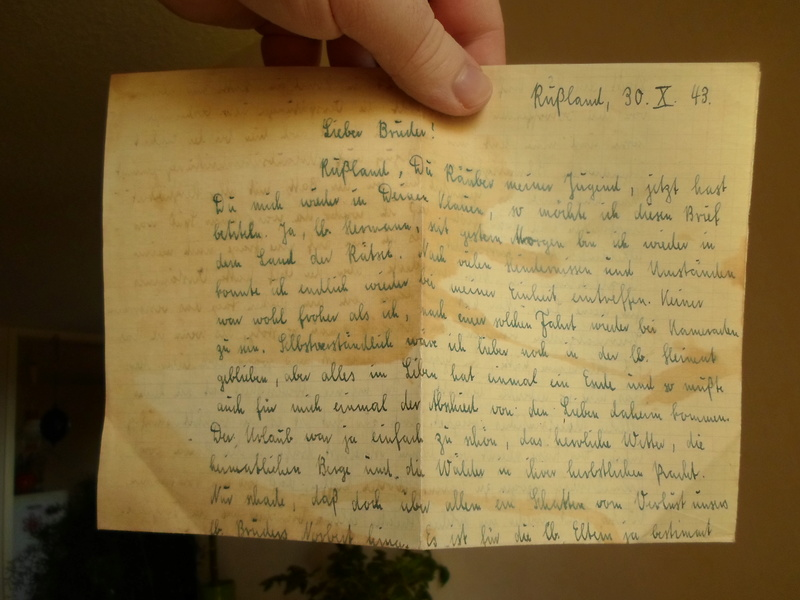 Rußland, 30. X. 43.
Lieber Bruder!
Rußland, Du Räuber meiner Jugend, jetzt hast
Du mich wieder in Deinen Klauen, so möchte ich diesen Brief
betiteln. Ja, lb. Hermann, seit gestern Morgen bin ich wieder in
dem Land der Rätsel. Nach vielen Hindernissen und Umständen
konnte ich endlich wieder bei meiner Einheit eintreffen. Keiner
war wohl froher als ich, nach einer solchen Fahrt wieder bei Kameraden
zu sein. Selbstverständlich wäre ich lieber noch in der lb. Heimat
geblieben, aber alles im Leben hat einmal ein Ende und so mußte
auch für mich einmal der Abschied von den Lieben daheim kommen.
Der Urlaub war ja einfach zu schön, das herrliche Wetter, die
heimatlichen Berge und die Wälder in ihrer herbstlichen Pracht.
Nur schade, daß doch über allem ein Schatten vom Verlust unseres
lb. Bruders Norbert hing. Es ist für die lb. Eltern ja bestimmt